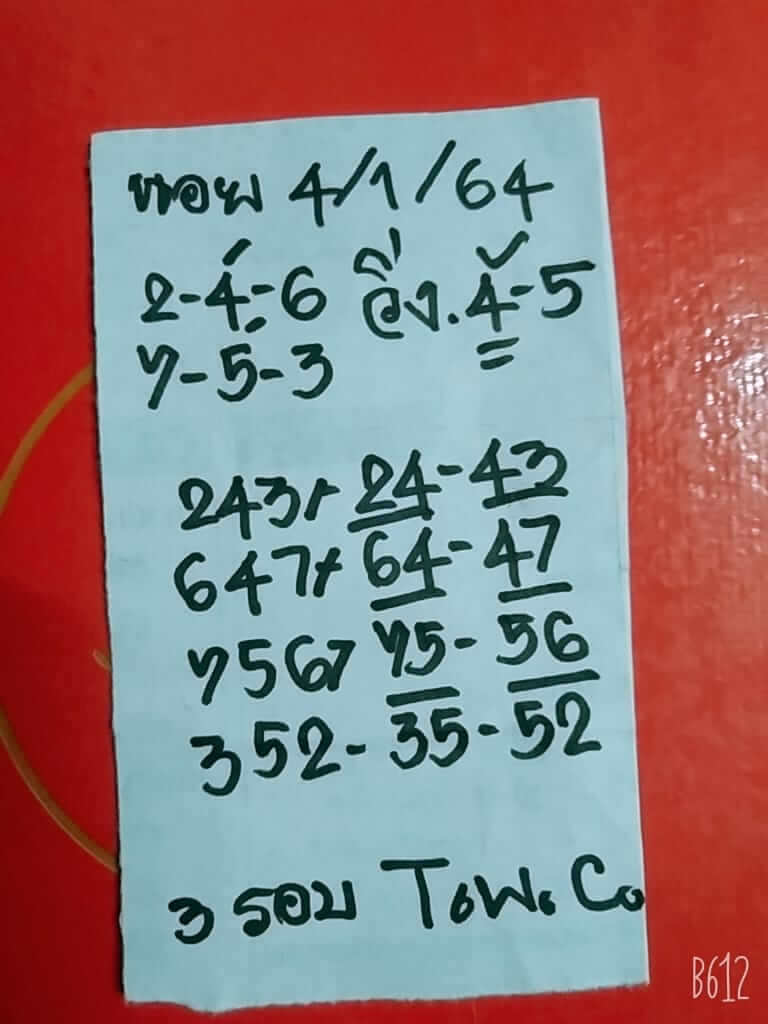 หอย 4/1/64
2-4-6 วิ่ง.4-5
7-5-3
243+ 24-43
647+ 64-47
756> 75-56
352-35-52
3 รอบ T.W. Co.
B612